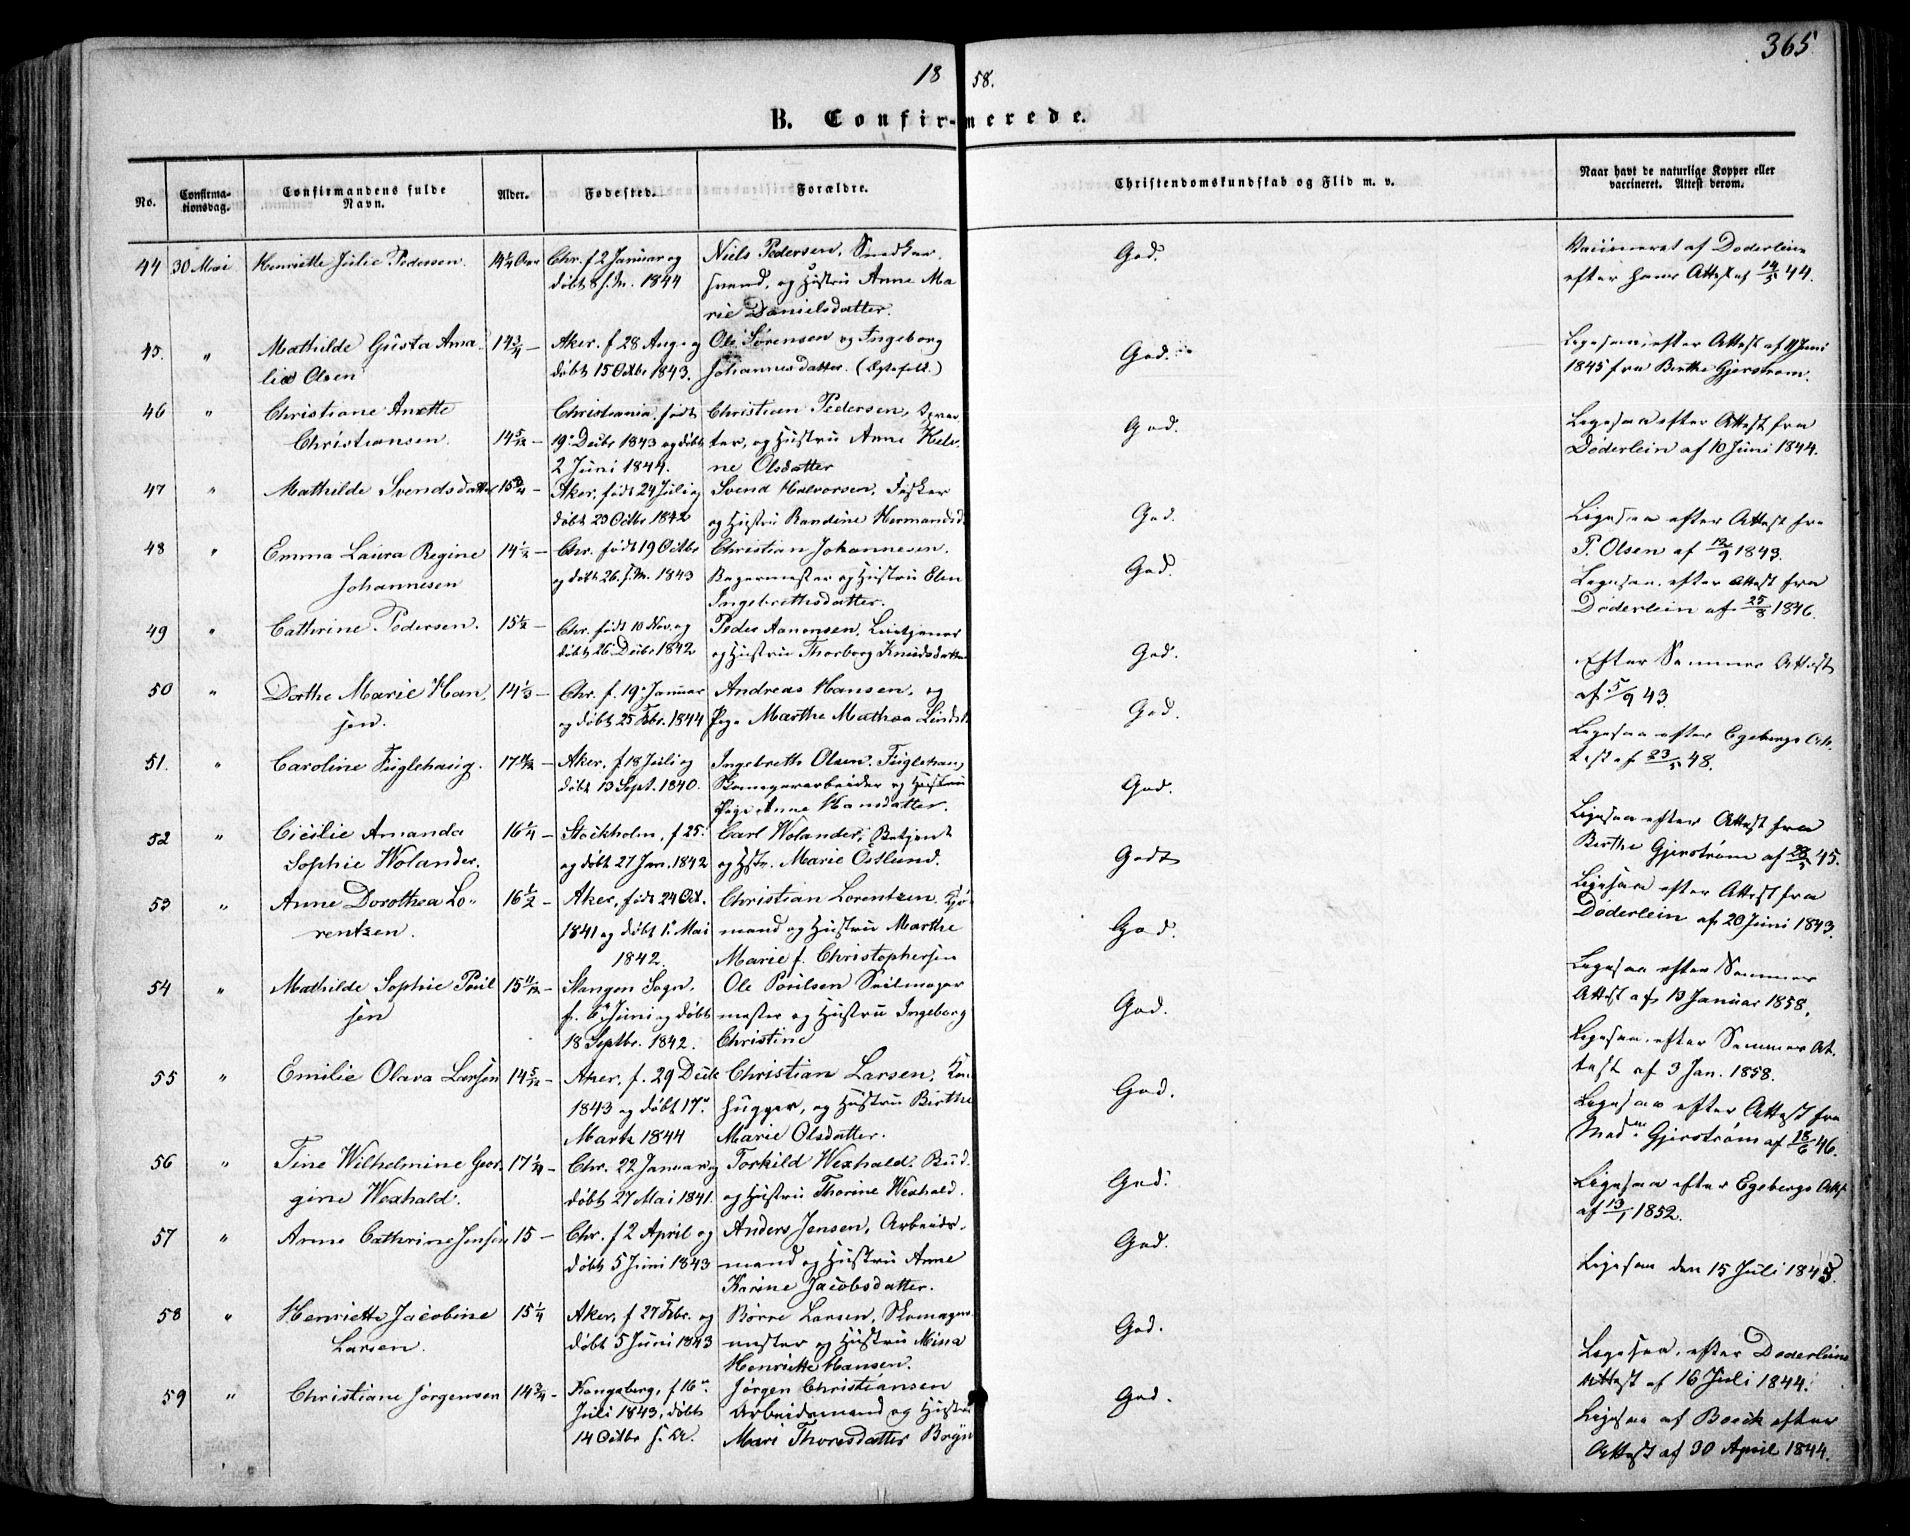 365
18 58.
B. Confirmerede.
No. Confirmationsdag. Confirmandens fulde Navn. Alder. Fødested. Forældre. Christendomskundskab og Flid m. v. Naar havt de naturlige Kopper eller vaccineret. Attest derom.
44 30 Mai Henriette Julie Pedersen. 14 1/4 Aar Chr. f 2 Januar og Niels Pedersen, Snedker God. Vaccineret af Døderlein
døbt 8 s. M. 1844 svend, og Hustru Anne Ma efter hans Attest af 14/5 44.
rie Danielsdatter.
45. " Mathilde Gusta Ama 14 3/4 — Aker. f 28 Aug. og Ole Sørensen og Ingeborg God. Ligesaa, efter Attest af 11 Juni
lia Olsen døbt 15 Octbr 1843. Johannesdatter. (Ægtefolk.) 1845 fra Birthe Gjerstrøm.
46 " Christiane Anette Christiania, født Christian Pedersen, God. Ligesaa efter Attest fra
Christiansen. 14 5/12 — 19de Decbr 1843 og døbt ter, og Hustru Anne Døderlein af 10 Juni 1844.
2 Juni 1844. ne Olsdatter
47 " Mathilde Svendsdatter 15 3/4 — Aker, født 24 Juli og Svend Halvorsen, Fisker God. Ligesaa efter Attest fra
døbt 23 Octbr 1842 og Hustru Randine Hermansd. P. Olsen af 12/9 1843.
48 " Emma Laura Regine 14 1/2 — Chr. født 19 Octbr Christian Johannesen. God. Ligesaa, efter Attest fra
Johannesen og døbt 26. s. M. 1843 Bagermester og Hustru Elen Døderlein af 25/8 1846.
Ingebrethsdatter.
49 " Cathrine Pedersen. 15 1/2 — Chr. født 10 Nov. og Peder Aanensen, God. Efter Sammes Attest
døbt 26 Decbr 1842 og Hustru Thorborg Knudsdatter af 5/9 43.
50 " Dorthe Marie Han 14 1/3 — Chr. f. 19de Januar Andreas Hansen, og God. Ligesaa efter Egebergs At
sen. og døbt 25 Febr. 1844 Pige Marthe Mathea test af 23/5 48.
51. " Caroline Fuglehaug. 17 — Aker, f 18 Juli og Ingebreth Olsen Fuglehaug God. Ligesaa efter Attest fra
døbt 13 Sept. 1840. Skomagerarbeider og Hustru Birthe Gjerstrøm af 28/5 45.
Pige Anne Hansdatter.
52 " Cicilie Amanda 16 1/4 — Stockholm, f 25. Carl Wolander, Betjent Godt Ligesaa efter Attest fra
Sophie Wolander. og døbt 27 Jan. 1842 og Hstr. Marie Östlund. Døderlein af 20 Juni 1843.
53 " Anne Dorothea Lo- 16 1/2 — Aker, født 24 Oct. Christian Lorentzen, God. Ligesaa efter Sammes
rentzen. 1841 og døbt 1ste Mai mand og Hustru Marthe Attest af 13 Januar 1858.
1842. Marie f. Christophersen
54 " Mathilde Sophie Poul 15 11/12 — Stangen Sogn, Ole Poulsen Seilmager God. Ligesaa, efter Sammes At
sen f. 6te Juni og døbt mester og Hustru Ingeborg test af 3 Jan. 1858.
18 Septbr. 1842. Christine
55 " Emilie Olava Larsen 14 5/12 — Aker, f. 29 Decbr Christian Larsen, God. Ligesaa efter Attest fra
1843 og døbt 17de hugger, og Hustru Birthe Mad. Gjerstrøm af 18/6 46.
Marts 1844 Marie Olsdatter.
56 " Tine Wilhelmine Geor 17 1/4 — Chr. 22 Januar og Torkild Wexhald. Bud God. Ligesaa efter Egebergs Attest
gine Wexhald. døbt 27 Mai 1841. og Hustru Thorine Wexhald. af 13/1 1852.
57 " Anne Cathrine Jensen 15 — Chr. f 2 April og Anders Jensen, Arbeids- God. Ligesaa den 15 Juli 1843.
døbt 5 Juni 1843 mand og Hustru Anne
Karine Jacobsdatter.
58 " Henriette Jacobine 15 1/4 Aker, f 27 Febr. og Børre Larsen, Skomager God. Ligesaa, efter Døderleins
Larsen. døbt 5 Juni 1843 mester og Hustru Henriette Hansen. Attest af 16 Juli 1844.
59 " Christiane Jørgensen 14 3/4 — Kongsberg, f 16de Jørgen Christiansen God. Ligesaa af Boeck efter
Juli 1843, døbt Arbeidsmand og Hustru Attest af 30 April 1844.
14 Octbr s. A. Mari Thoresdatter